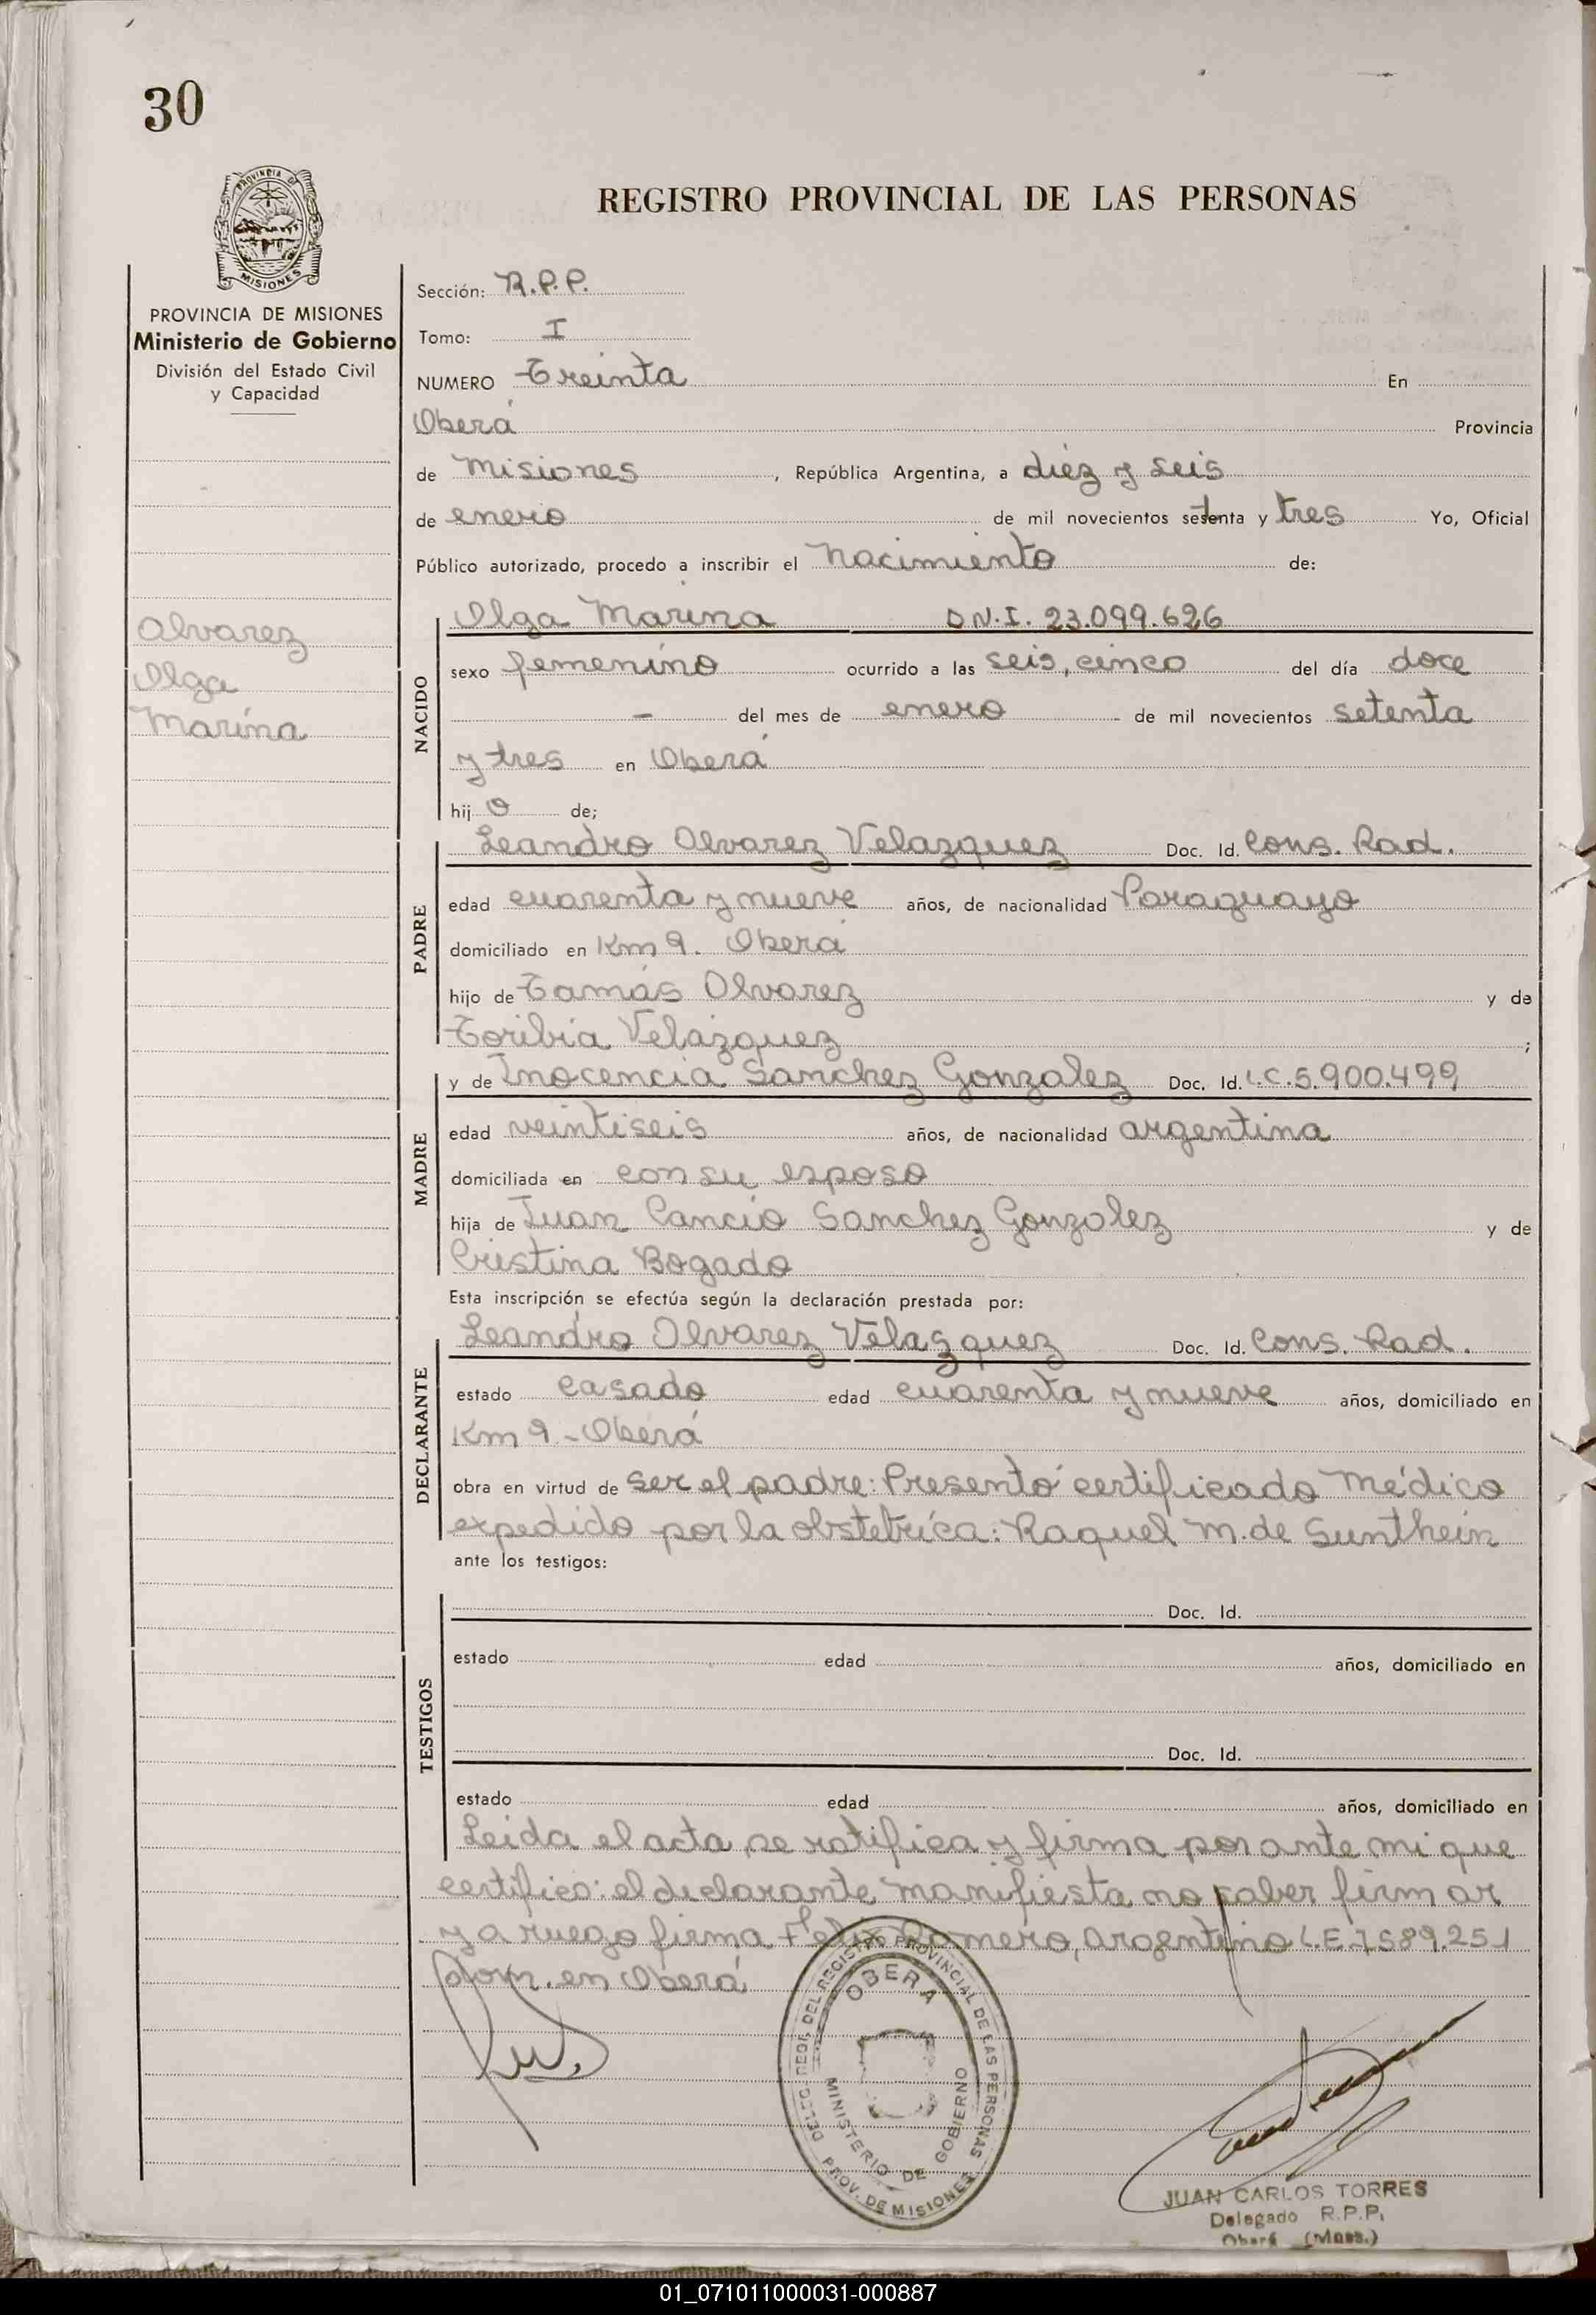 30
PROVINCIA DE
MISIONES
REGISTRO PROVINCIAL DE LAS PERSONAS
PROVINCIA DE MISIONES
Ministerio de Gobierno
División del Estado Civil
y Capacidad
Alvarez
Olga
Marina
Sección: R.P.P.
Tomo: I
NUMERO Treinta En
Oberá Provincia
de Misiones, República Argentina, a diéz y seis
de enero de mil novecientos setenta y tres Yo, Oficial
Público autorizado, procedo a inscribir el Nacimiento de:
NACIDO
Olga Marina D.N.I. 23.099.626
sexo femenino ocurrido a las seis, cinco del día doce
- del mes de enero de mil novecientos setenta
y tres en Oberá
hijo de;
PADRE
Leandro Alvarez Velazquez Doc. Id. Cons. Rad.
edad cuarenta y nueve años, de nacionalidad Paraguayo
domiciliado en Km 9. Oberá
hijo de Tamás Alvarez y de
Toribia Velázquez;
MADRE
y de Inocencia Sanchez Gonzalez Doc. Id. L.C.5.900.499
edad veintiseis años, de nacionalidad argentina
domiciliada en con su esposo
hija de Juan Cancio Sanchez Gonzalez y de
Cristina Bogado
Esta inscripción se efectúa según la declaración prestada por:
DECLARANTE
Leandro Alvarez Velazquez Doc. Id. Cons. Rad.
estado casado edad cuarenta y nueve años, domiciliado en
Km 9 - Oberá
obra en virtud de ser el padre: Presentó certificado Médico
expedido por la obstetrica: Raquel M. de Sunthein
ante los testigos:
TESTIGOS
Doc. Id.
estado edad años, domiciliado en
Doc. Id.
estado edad años, domiciliado en
Leida el acta, se ratifica y firma por ante mi que
certifico: el declarante manifiesta no saber firmar
y a ruego firma Felix Romero, Argentino L.E.7.589.251
dom. en Oberá
DELEG. REGI. DEL REGISTRO PROVINCIAL DE LAS PERSONAS
OBERA
MINISTERIO DE GOBIERNO
PROV. DE MISIONES
JUAN CARLOS TORRES
Delegado R.P.P.
Oberá (Mnes.)
01_071011000031-000887